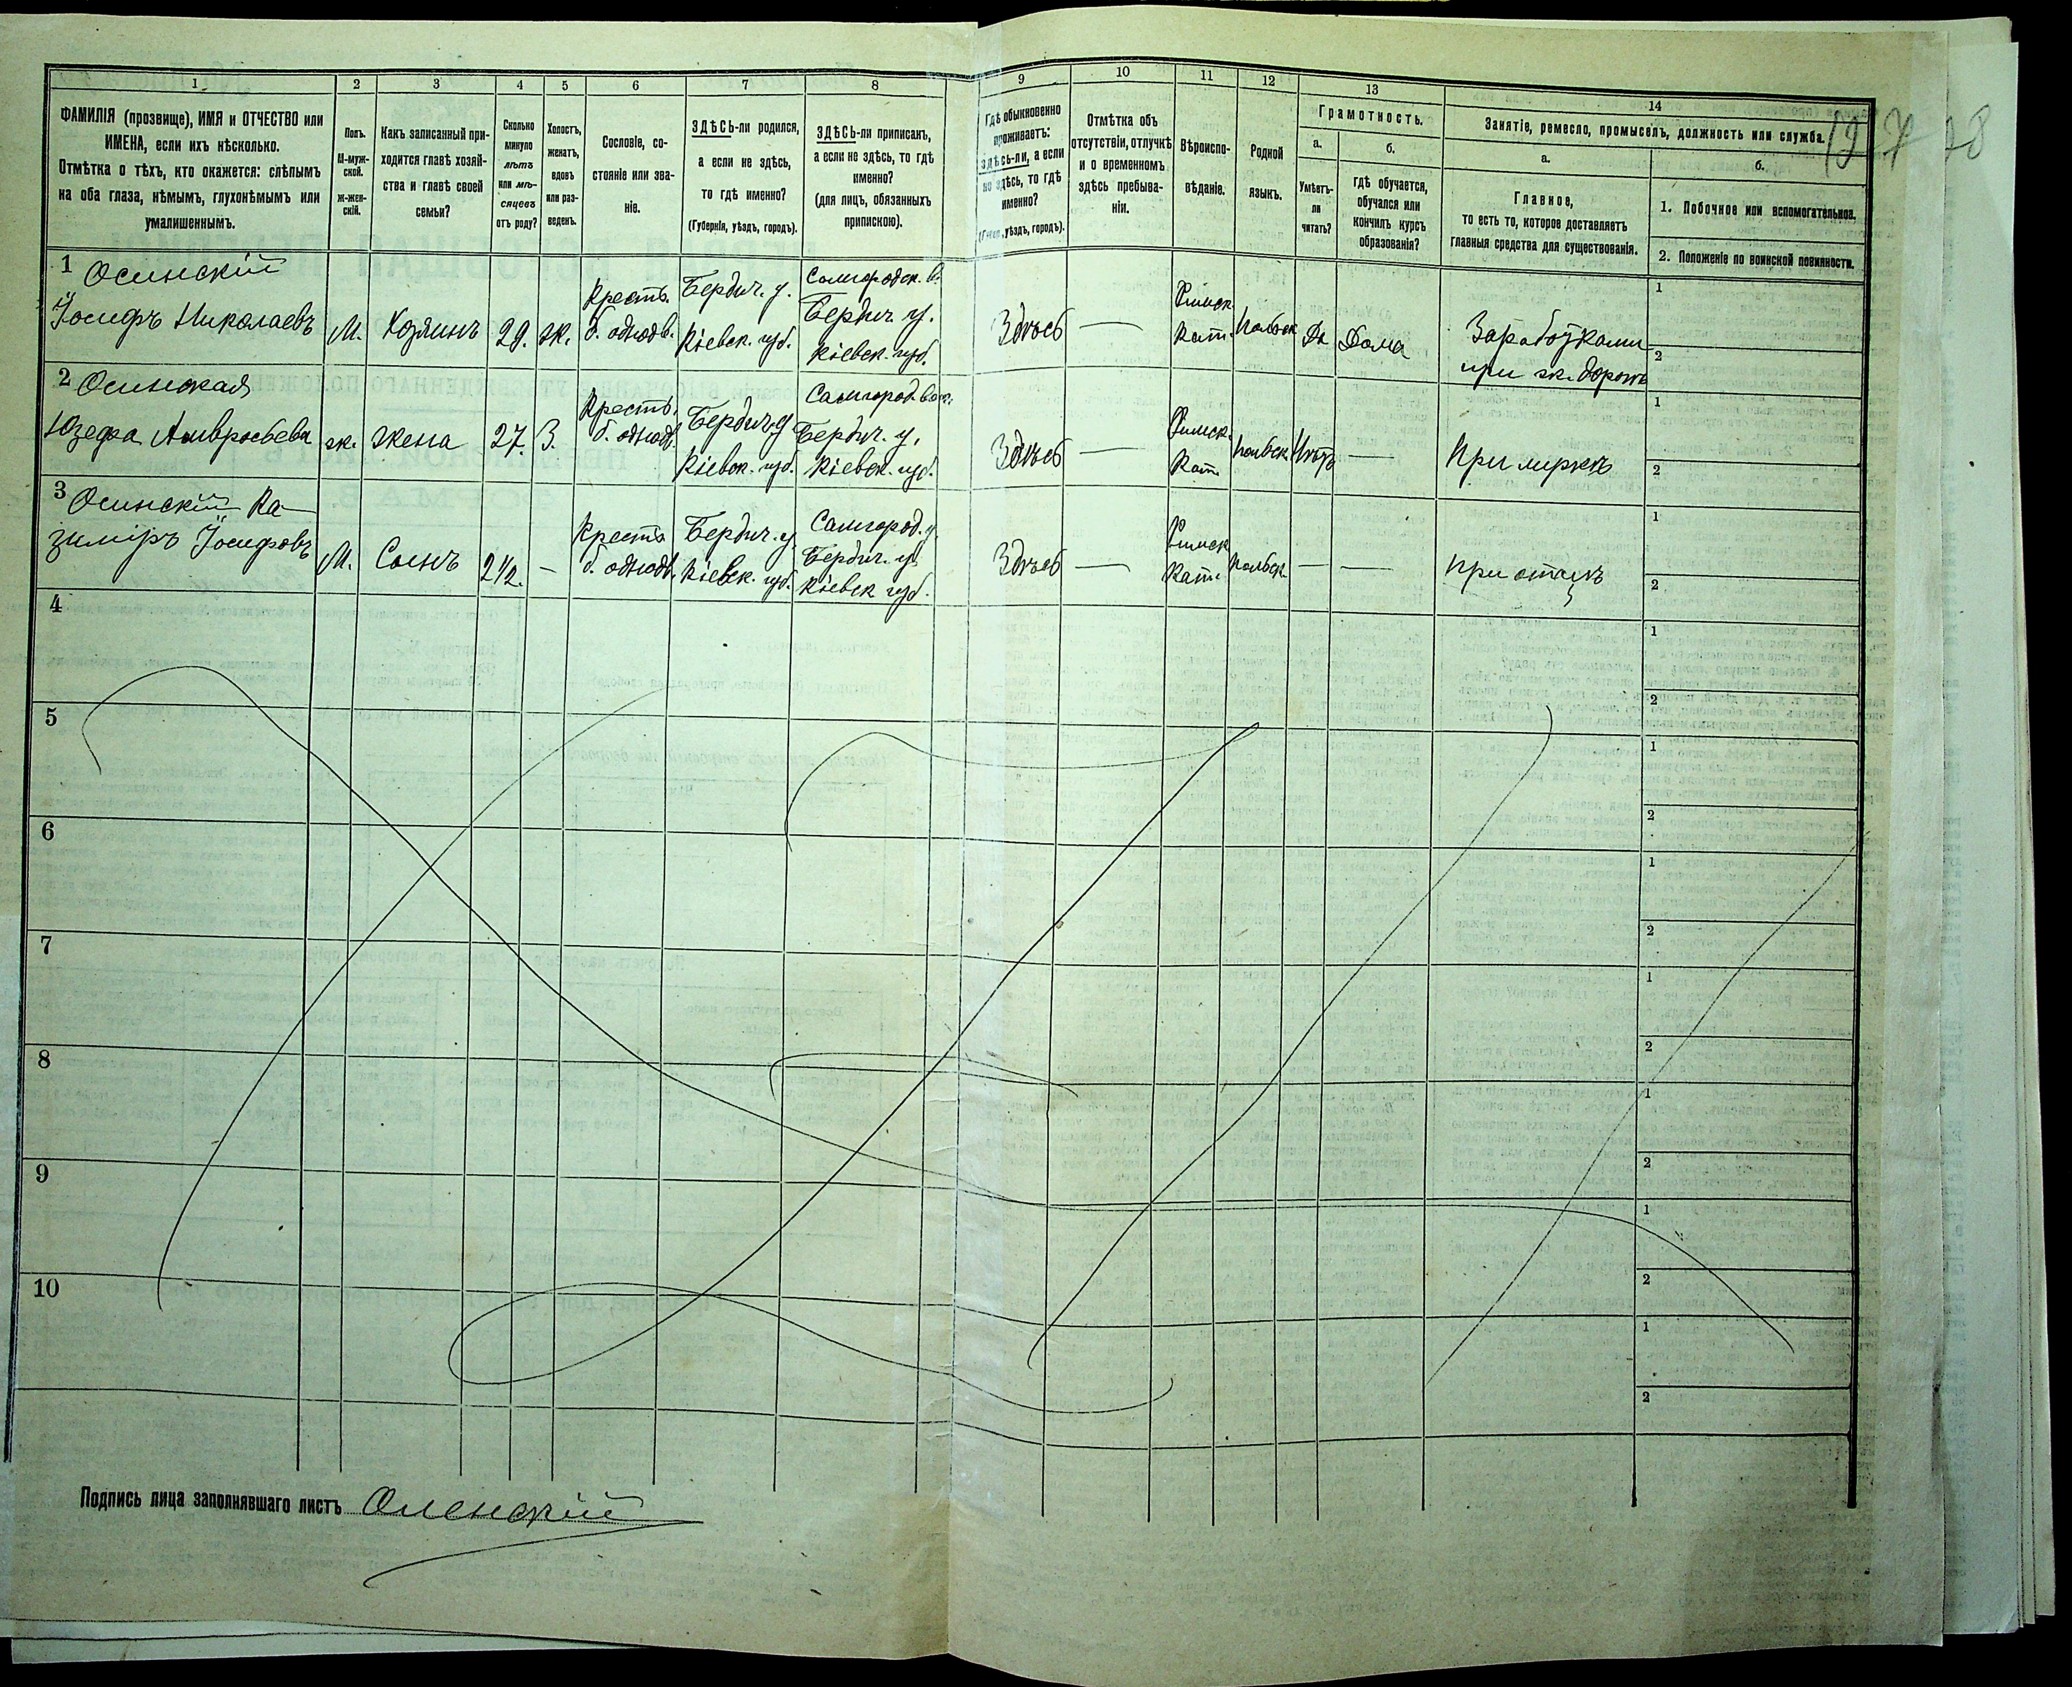 1 2 3 4 5 6 7 8 9 10 11 12 13 14
ФАМИЛІЯ (прозвище), ИМЯ и ОТЧЕСТВО или
ИМЕНА, если ихъ нѣсколько.
Отмѣтка о тѣхъ, кто окажется: слѣпымъ
на оба глаза, нѣмымъ, глухонѣмымъ или
умалишеннымъ.
Полъ.
М-муж-
ской.
ж-жен-
скій.
Какъ записанный при-
ходится главѣ хозяй-
ства и главѣ своей
семьи?
Сколько
минуло
лѣтъ
или мѣ-
сяцевъ
отъ роду?
Холостъ,
женатъ,
вдовъ
или раз-
веденъ.
Сословіе, со-
стояніе или зва-
ніе.
ЗДѢСЬ-ли родился,
а если не здѣсь,
то гдѣ именно?
(Губернія, уѣздъ, городъ).
ЗДѢСЬ-ли приписанъ,
а если не здѣсь, то гдѣ
именно?
(для лицъ, обязанныхъ
припискою).
Гдѣ обыкновенно
проживаетъ:
здѣсь-ли, а если
не здѣсь, то гдѣ
именно?
уѣздъ, городъ).
Отмѣтка объ
отсутствіи, отлучкѣ
и о временномъ
здѣсь пребыва-
ніи.
Вѣроиспо-
вѣданіе.
Родной
языкъ.
Грамотность.
а.
Умѣетъ-
ли
читать?
б.
гдѣ обучается,
обучался или
кончилъ курсъ
образованія?
Занятіе, ремесло, промыселъ, должность или служба.
а.
Главное,
то есть то, которое доставляетъ
главныя средства для существованія.
б.
1. Побочное или вспомогательное.
2. Положеніе по воинской повинности.
1 Осинскій
Іосифъ Николаевъ
М.
Хозяинъ
29.
ж.
Кресть.
б. однодв.
Бердич. у.
Кіевск. губ.
Самгородск. в.
Бердич. у.
Кіевск. губ.
Здѣсь
—
Римск.
Кат.
Польск
Да
Дома
Заработками
при ж. дорогѣ
1
2
2 Осинская
Юзефа Амвросьева
ж.
жена
27.
З.
Кресть.
б. однодв.
Бердич. у
Кіевск. губ.
Самгород. вол.
Бердич. у.
Кіевск. губ.
Здѣсь
—
Римск.
Кат.
польск.
Нѣтъ
—
При мужѣ
1
2
3 Осинскій Ка-
зиміръ Іосифовъ
М.
Сынъ
2½.
—
Кресть
б. однодв.
Бердич. у.
Кіевск. губ.
Самгород. в.
Бердич. у.
Кіевск губ.
Здѣсь
—
Римск
Кат.
польск.
—
—
При отцѣ
1
2
4
1
2
5
1
2
6
1
2
7
1
2
8
1
2
9
1
2
10
1
2
Подпись лица заполнявшаго листъ Оленскій